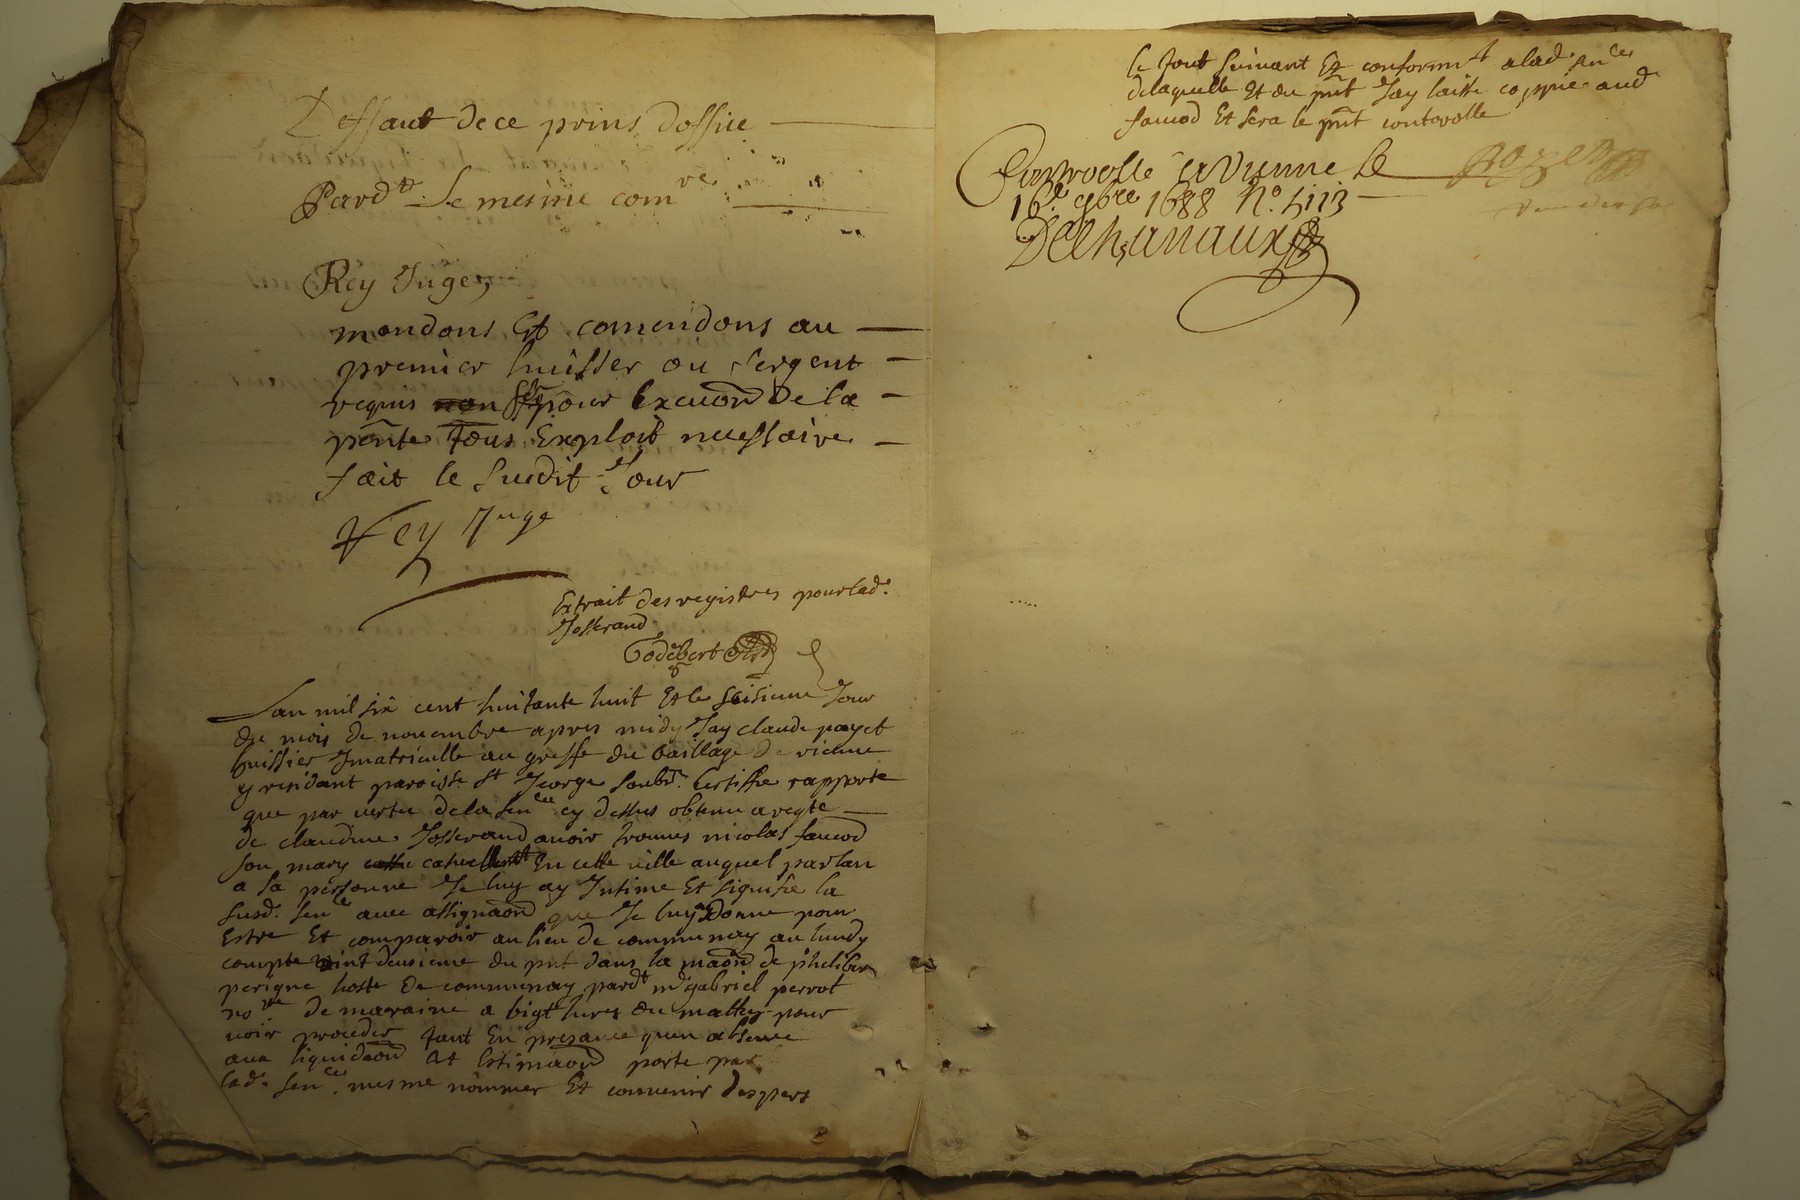 Deffaut de ce prins doffice
Pard.t le mesme com.re
Rey Juge,
mandons Et comendons au
premier huissier ou sergent
requis pour Lexcuon de la
pnte tous Exploit necessaire
fait le susdit Jour
Rey Juge
Extrait des registres pour lad.e
Josserand
Godebert
Lan mil six cent huitante huit Et le seisieme Jour
du mois de nouembre apres midy Jay claude payet
huissier Jmatriculle au greffe du baillage de vienne
y residant paroisse St George soub.né Certiffie rapporte
que par vertu de la sen.ce cy dessus obtenu a reqte
de claudine Josserand auoir trouues nicolas faucod
son mary En cette ville auquel parlan
a sa personne Je luy ay Intime Et signifie la
susd. sen.ce auec assignaon que Je luy ay donne pour
Estre Et comparoir au lieu de communay au lundy
compte vint deusieme du pnt dans la maon de philiber
perigne hoste de communay pard.t m.e gabriel perrot
no.re de maraine a bigt hures du mattin pour
uoir proceder tant En presance quen absence
aux liquidaon Et Estimaon porte par
lad. sen.ce mesme nommer Et conuenir despers
le tout suiuant Et conformt a lad. sen.ce
de laquelle Et du pnt Jay laisse coppie aud
faucod Et sera le pnt controolle
Controolle a Vienne le
16.e 9bre 1688 No. 5113
Delhanaux